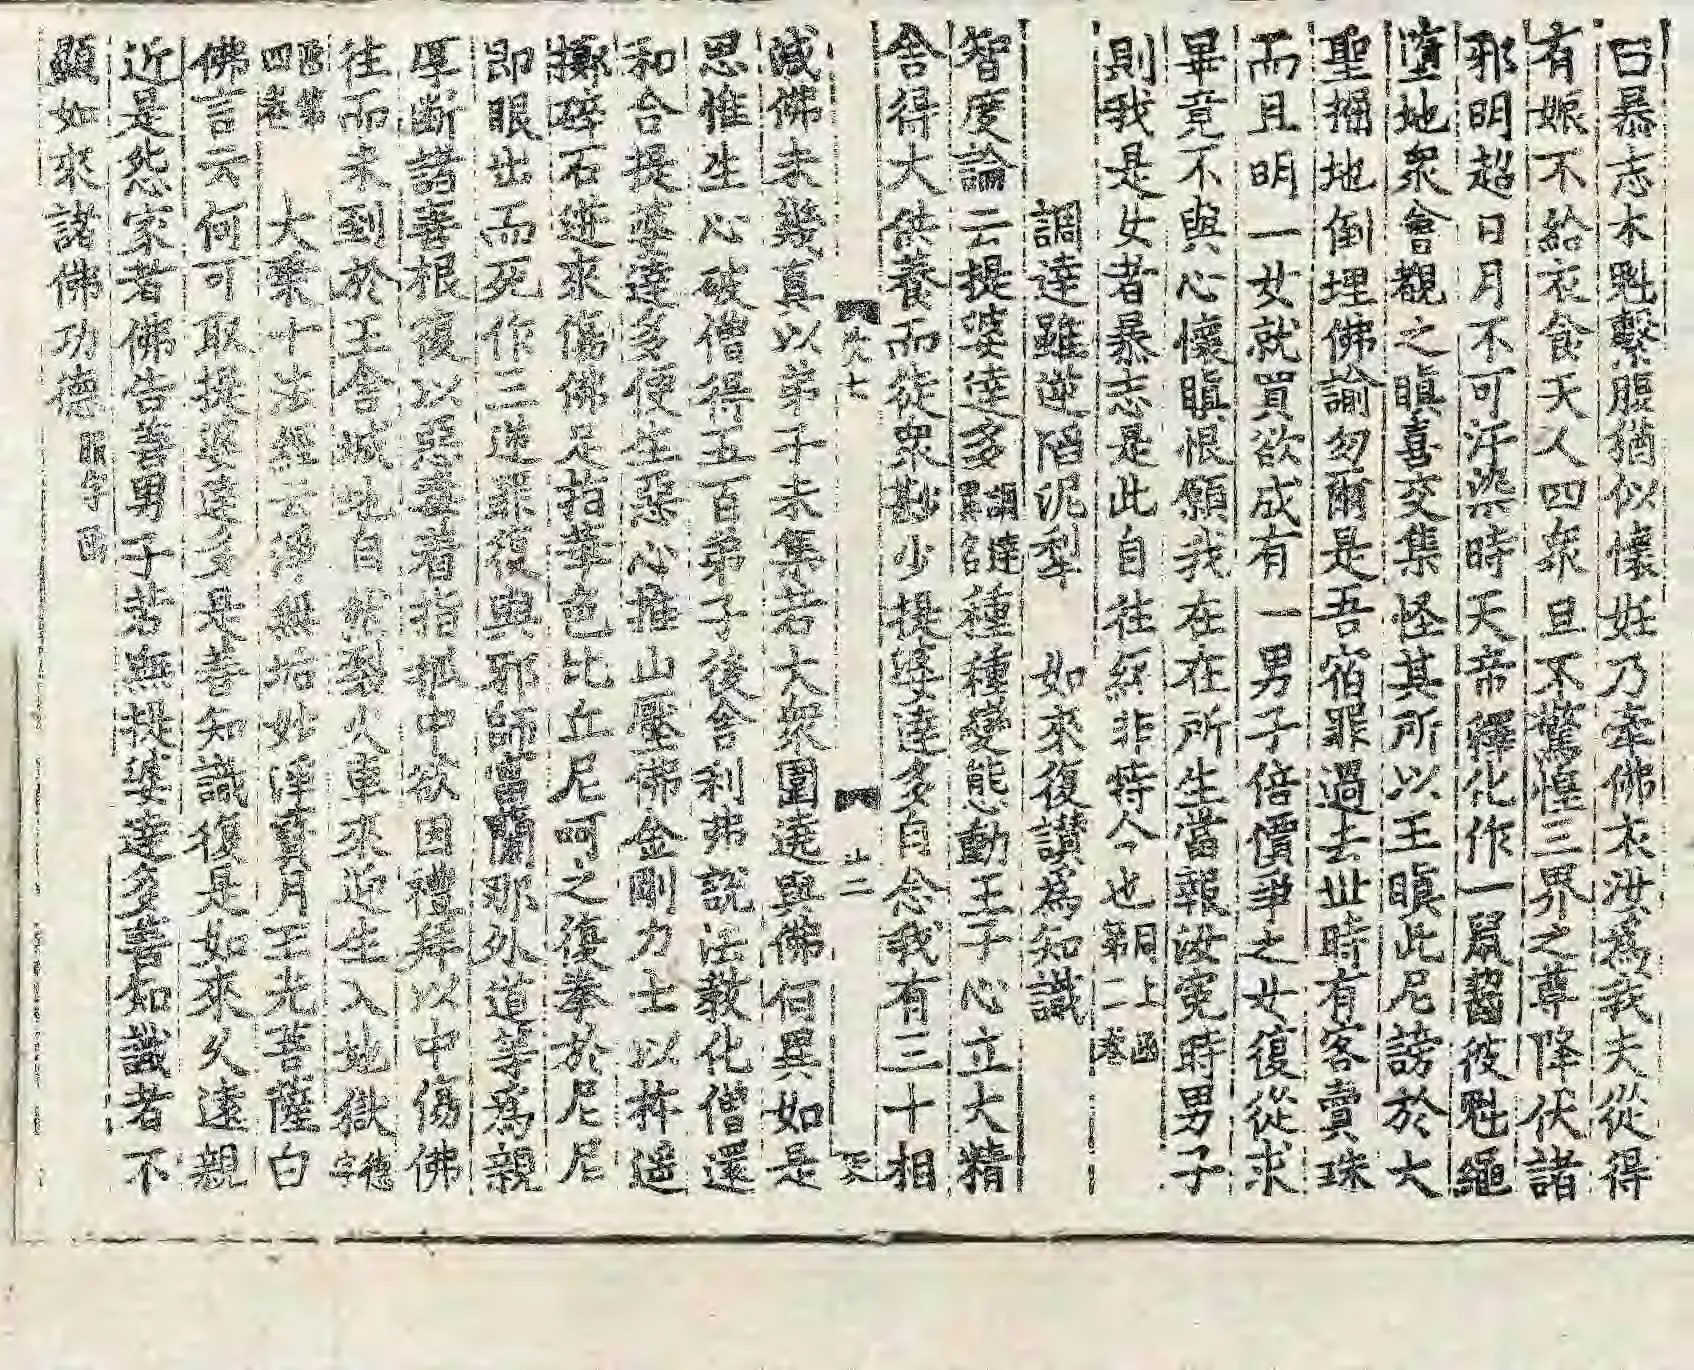 曰暴志木魁繫腹猶似懷妊乃牽佛衣汝為我夫從得
有娠不給衣食天人四衆旦不驚惶三界之尊降伏諸
邪明超日月不可汙染時天帝釋化作一鼠齧彼魁繩
墮地衆會觀之瞋喜交集怪其所以王瞋此尼謗於大
聖掘地倒埋佛諭勿爾是吾宿罪過去世時有客賣珠
而且明一女就買欲成有一男子倍價爭之女復從求
畢竟不與心懷瞋恨願我在在所生當報汝寃時男子
則我是女者暴志是此自往經非特今也同上函第二卷
調達雖逆陷泥犁　如來復讃為知識
智度論云提婆達多調達異名種種變態動王子心立大精
舍得大供養而徒衆尠少提婆達多自念我有三十相
減佛未幾真以弟子未集若大衆圍遶與佛何異如是
思惟生心破僧得五百弟子後舍利弗說法教化僧還
和合提婆達多便生惡心推山壓佛金剛力士以杵遥
擲碎石迸來傷佛足指華色比丘尼呵之復拳於尼尼
即眼出而死作三逆罪復與邪師富蘭那外道等為親
厚斷諸善根復以惡毒着指抓中欲因禮拜以中傷佛
往而未到於王舍城地自然裂火車來迎生入地獄德字
函第四卷　大乘十法經云淨無垢妙淨寶月王光菩薩白
佛言云何可取提婆達多是善知識復是如來久遠親
近是怨家者佛告善男子若無提婆達多善知識者不
顯如來諸佛功德服字函